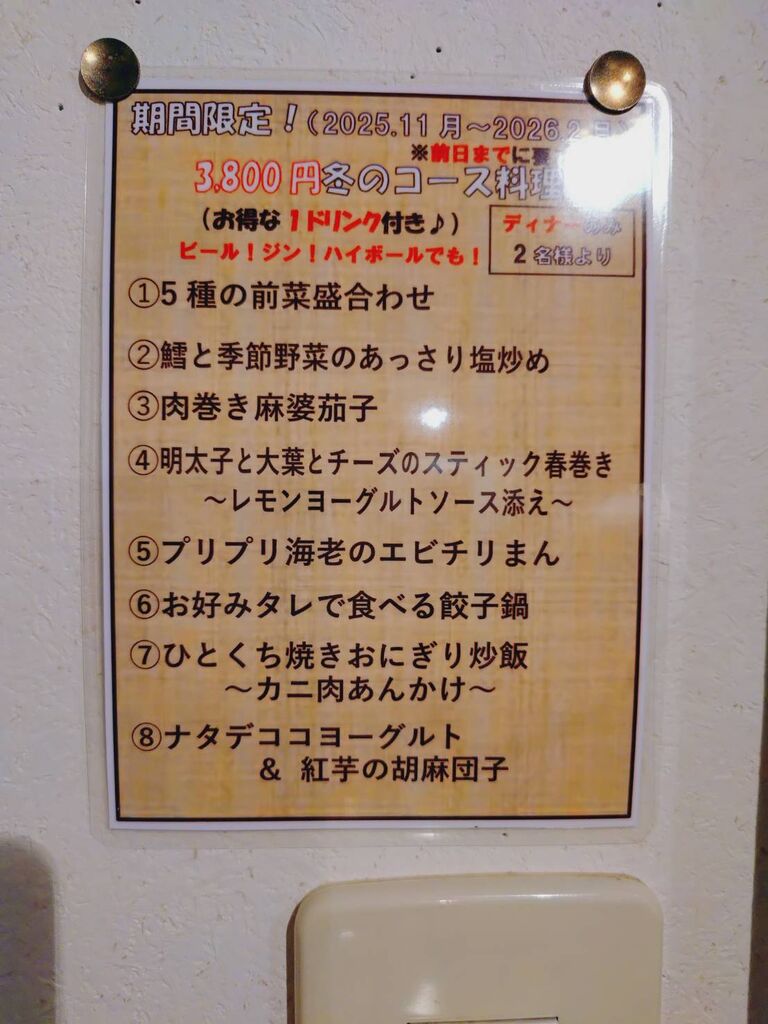 期間限定！（2025.11月～2026.2
※前日までに
3,800円冬のコース料理
（お得な1ドリンク付き♪）
ビール！ジン！ハイボールでも！
ディナーのみ
2名様より
①5種の前菜盛合わせ
②鱈と季節野菜のあっさり塩炒め
③肉巻き麻婆茄子
④明太子と大葉とチーズのスティック春巻き
～レモンヨーグルトソース添え～
⑤プリプリ海老のエビチリまん
⑥お好みタレで食べる餃子鍋
⑦ひとくち焼きおにぎり炒飯
～カニ肉あんかけ～
⑧ナタデココヨーグルト
& 紅芋の胡麻団子